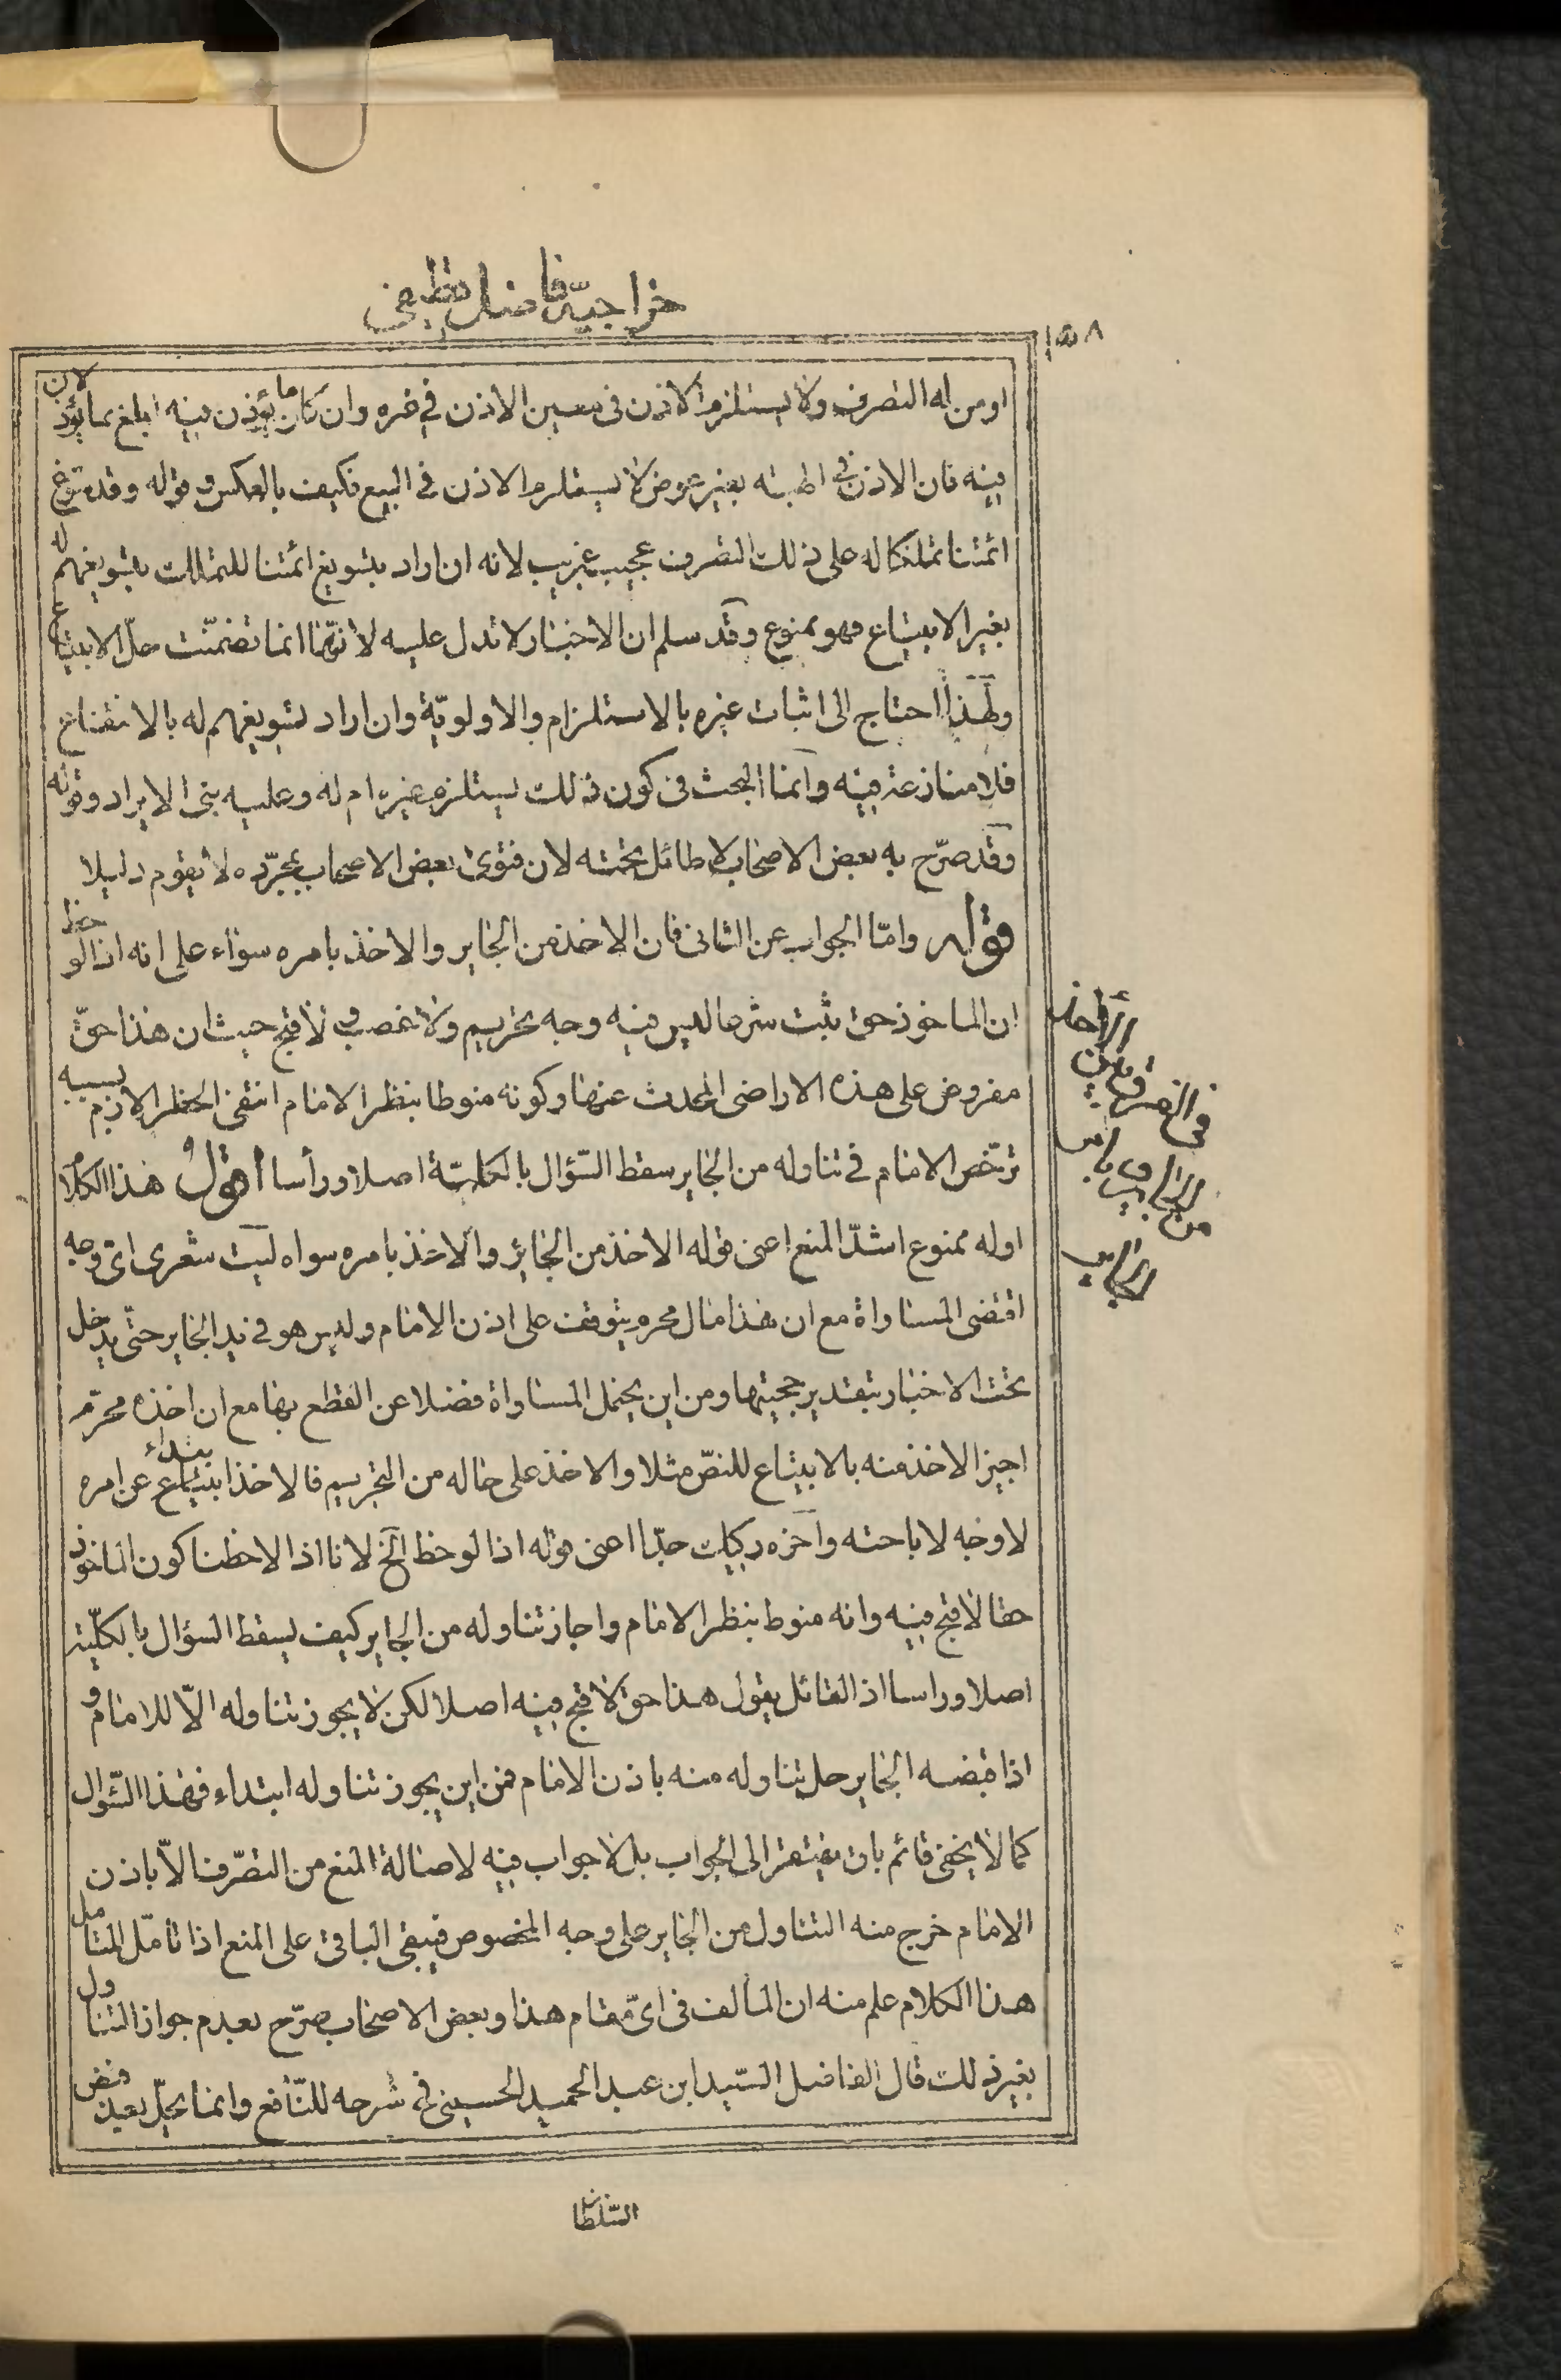 خراجيّة فاضل قطيفى
١٥٨
او من له التصرف ولا يستلزم الاذن فى معين الاذن في غيره وان كان ما يؤذن فيه ابلغ مما يؤذن لان
فيه فان الاذن في الهبته بغير عوض لا يستلزم الاذن في البيع فكيف بالعكس وقوله وقد سوغ
ائمتنا تملكا له على ذلك التصرف عجيب غريب لانه ان اراد بتسويغ ائمتنا للتملك بتسويغهم له
بغير الابتياع فهو ممنوع وقد سلم ان الاخبار لا تدل عليه لانّها انما تضمنّت حلّ الابتياع
ولهذا احتاج الى اثبات غيره بالاستلزام والاولويّة وان اراد تسويغهم له بالانتفاع
فلا منازعة فيه وانما البحث فى كون ذلك يستلزم غيره ام له وعليه بنى الايراد وقوله
وقد صرّح به بعض الاصحاب لا طائل تحته لان فتوى بعض الاصحاب بمجرّده لا تقوم دليلا
قوله وامّا الجواب عن الثانى فان الاخذ من الجاير والاخذ بامره سواء على انه اذا لوحظ
ان الماخوذ حق ثبت شرعا ليس فيه وجه تحريم ولا غصب ولا قبح حيث ان هذا حقّ
مفروض على هذه الاراضى المحدث عنها وكونه منوطا بنظر الامام انتفى الحظر اللازم بسببه
ترخص الامام في تناوله من الجاير سقط السّؤال بالكليّة اصلا ورأسا اقول هذا الكلام
اوله ممنوع اشدّ المنع اعنى قوله الاخذ من الجائر والاخذ بامره سواء ليت شعرى اىّ وجه
اقتضى المساواة مع ان هذا مال محرم يتوقف على اذن الامام وليس هو في يد الجاير حتّى يدخل
تحت الاخبار بتقدير حجيتها ومن اين يحتمل المساواة فضلا عن القطع بها مع ان اخذه محرّم
اجيز الاخذ منه بالابتياع للنصّ مثلا والاخذ على حاله من التحريم فالاخذ ابتداء عن امره
لا وجه لاباحته وآخره ركيك جدّا اعنى قوله اذا لوحظ الخ لانا اذا لاحظنا كون الماخوذ
حقا لا قبح فيه وانه منوط بنظر الامام واجاز تناوله من الجاير كيف يسقط السؤال بالكليّة
اصلا وراسا اذ القائل يقول هذا حق لا قبح فيه اصلا لكن لا يجوز تناوله الّا للامام و
اذا قبضه الجاير حل تناوله منه باذن الامام فمن اين يجوز تناوله ابتداء فهذا السّؤال
كما لا يخفى قائم بان مفتقر الى الجواب بل لا جواب فيه لاصالة المنع من التصرّف الّا باذن
الامام خرج منه التناول من الجاير على وجه المخصوص فيبقى الباقى على المنع اذا تامّل المتامل
هذا الكلام علم منه ان المالف فى اىّ مقام هذا وبعض الاصحاب صرّح بعدم جواز التناول
بغير ذلك قال الفاضل السّيد ابن عبد الحميد الحسينى فى شرحه للنّافع وانما يحلّ بعد قبض
السّلطان
فى الفرق بين الأخذ
من الجاير و بامر
الجاير